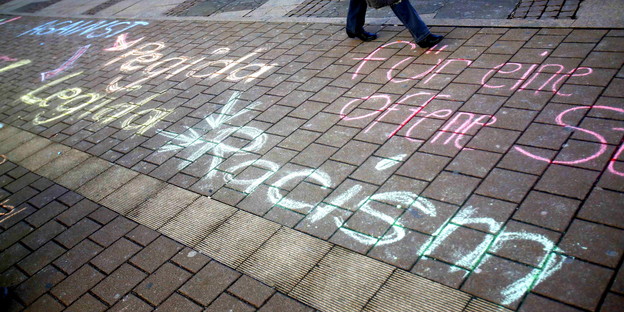 AGAINST
Pegida
Legida
Racism
für eine
offene S